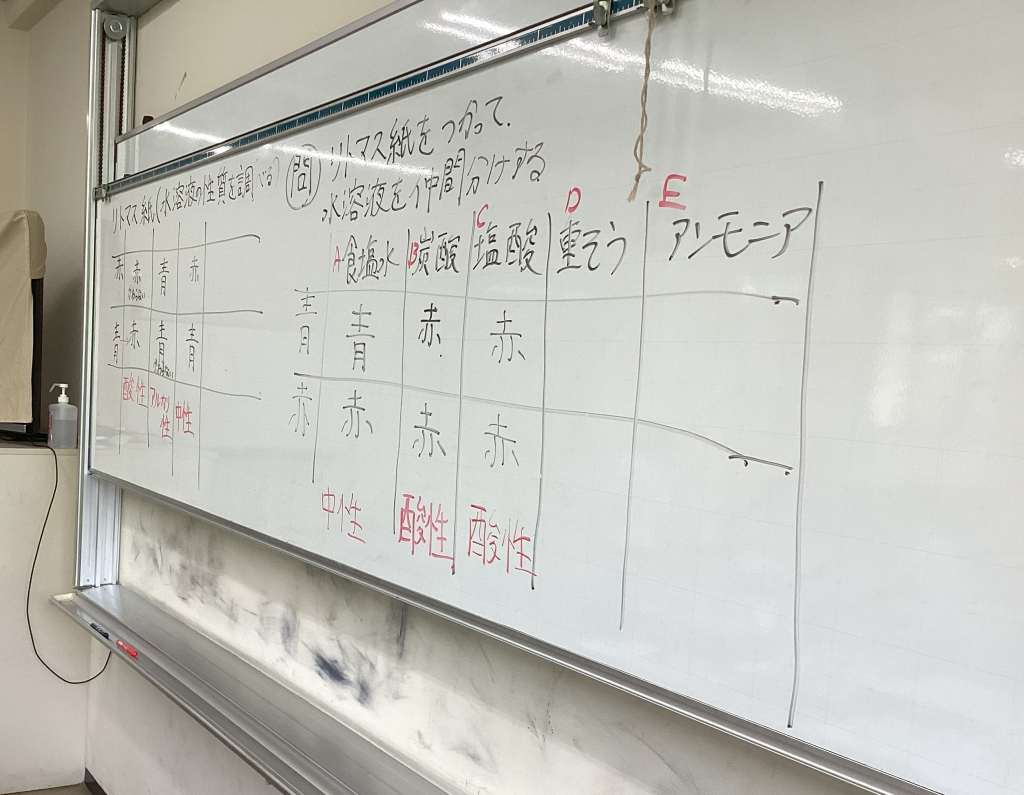 リトマス紙(水溶液の性質を調べる)
赤 赤 青 赤
かわらない
青→赤 青 青
かわらない
酸性 アルカリ性 中性
問 リトマス紙をつかって、
水溶液を仲間分けする
A食塩水 B炭酸 C塩酸 D重そう E アンモニア
青 青 赤 赤
赤 赤 赤 赤
中性 酸性 酸性